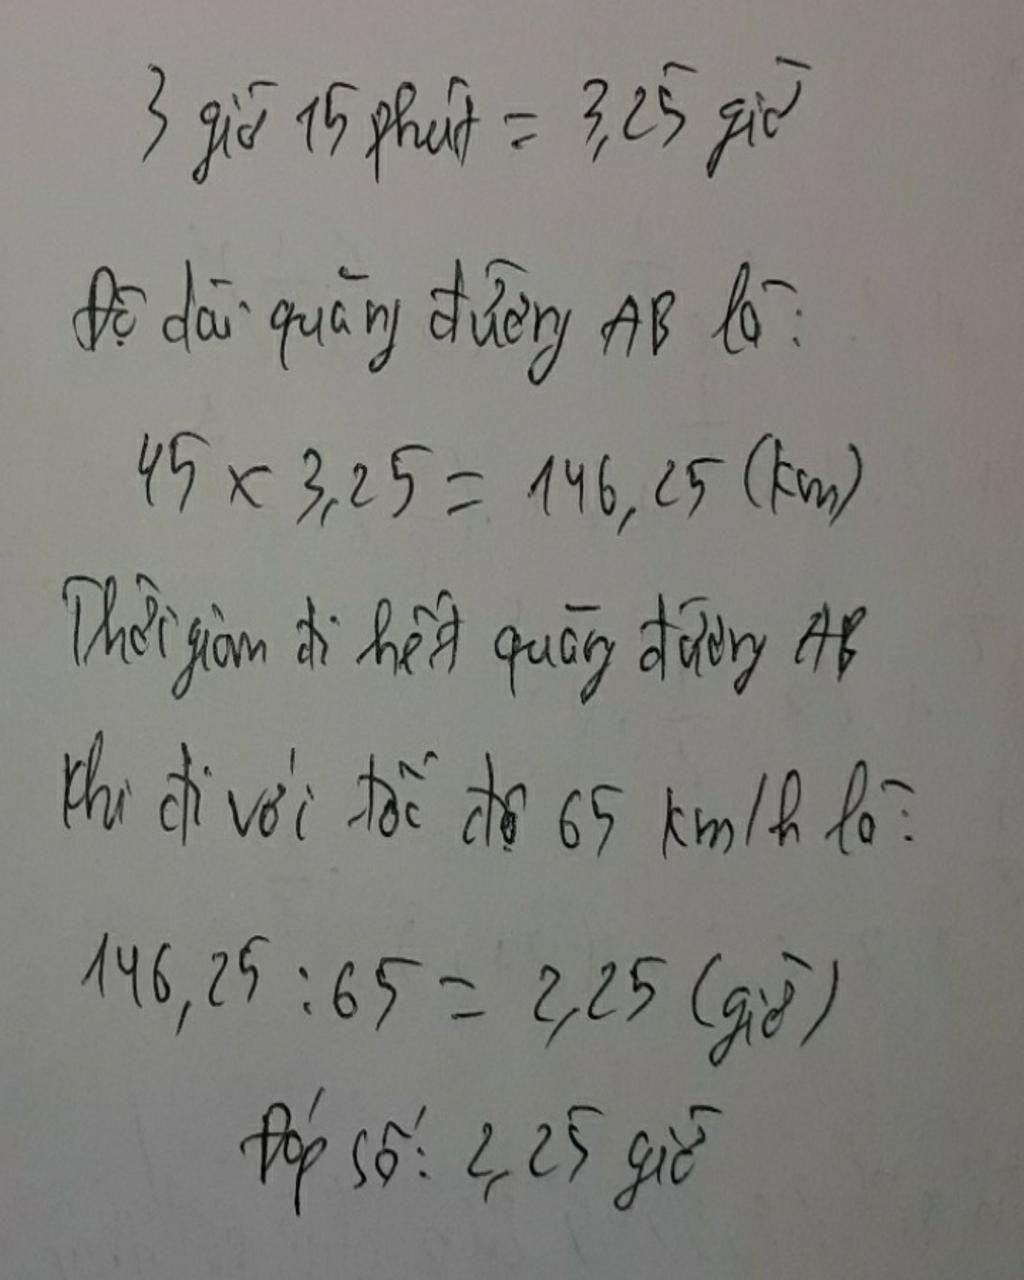 3 giờ 15 phút = 3,25 giờ
Độ dài quãng đường AB là:
45 x 3,25 = 146,25 (km)
Thời gian đi hết quãng đường AB
khi đi với tốc độ 65 km/h là:
146,25 : 65 = 2,25 (giờ)
Đáp số: 2,25 giờ